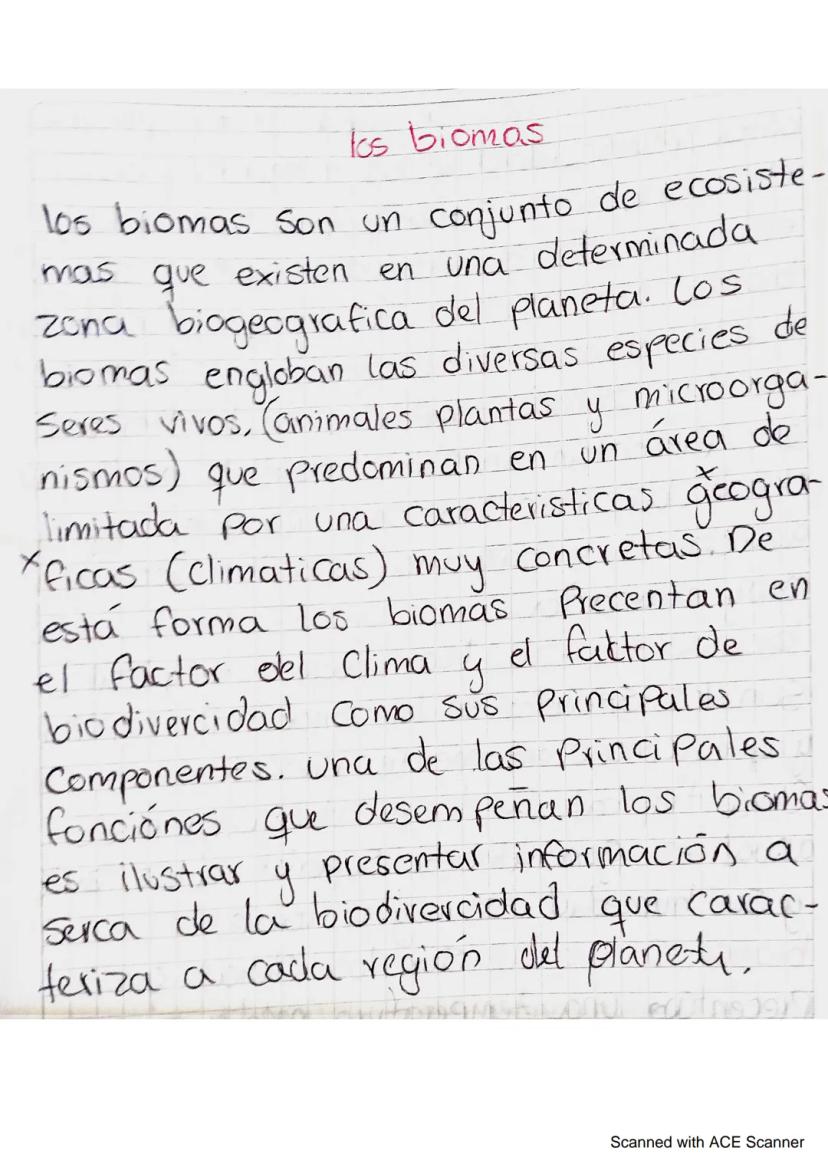 los biomas
los biomas son un conjunto de ecosiste-
mas que existen en una determinada
zona biogeografica del planeta. Los
biomas engloban las diversas especies de
seres vivos, (animales plantas y microorga-
nismos) que predominan en un área de
limitada por una caracteristicas geogra-
ficas (climaticas) muy concretas. De
está forma los biomas precentan en
el factor del clima y el faktor de
biodivercidad como sus principales
componentes. una de las principales
fonciónes que desempeñan los biomas
es ilustrar y presentar información a
serca de la biodivercidad que carac-
teriza a cada región del planeta.
Scanned with ACE Scanner